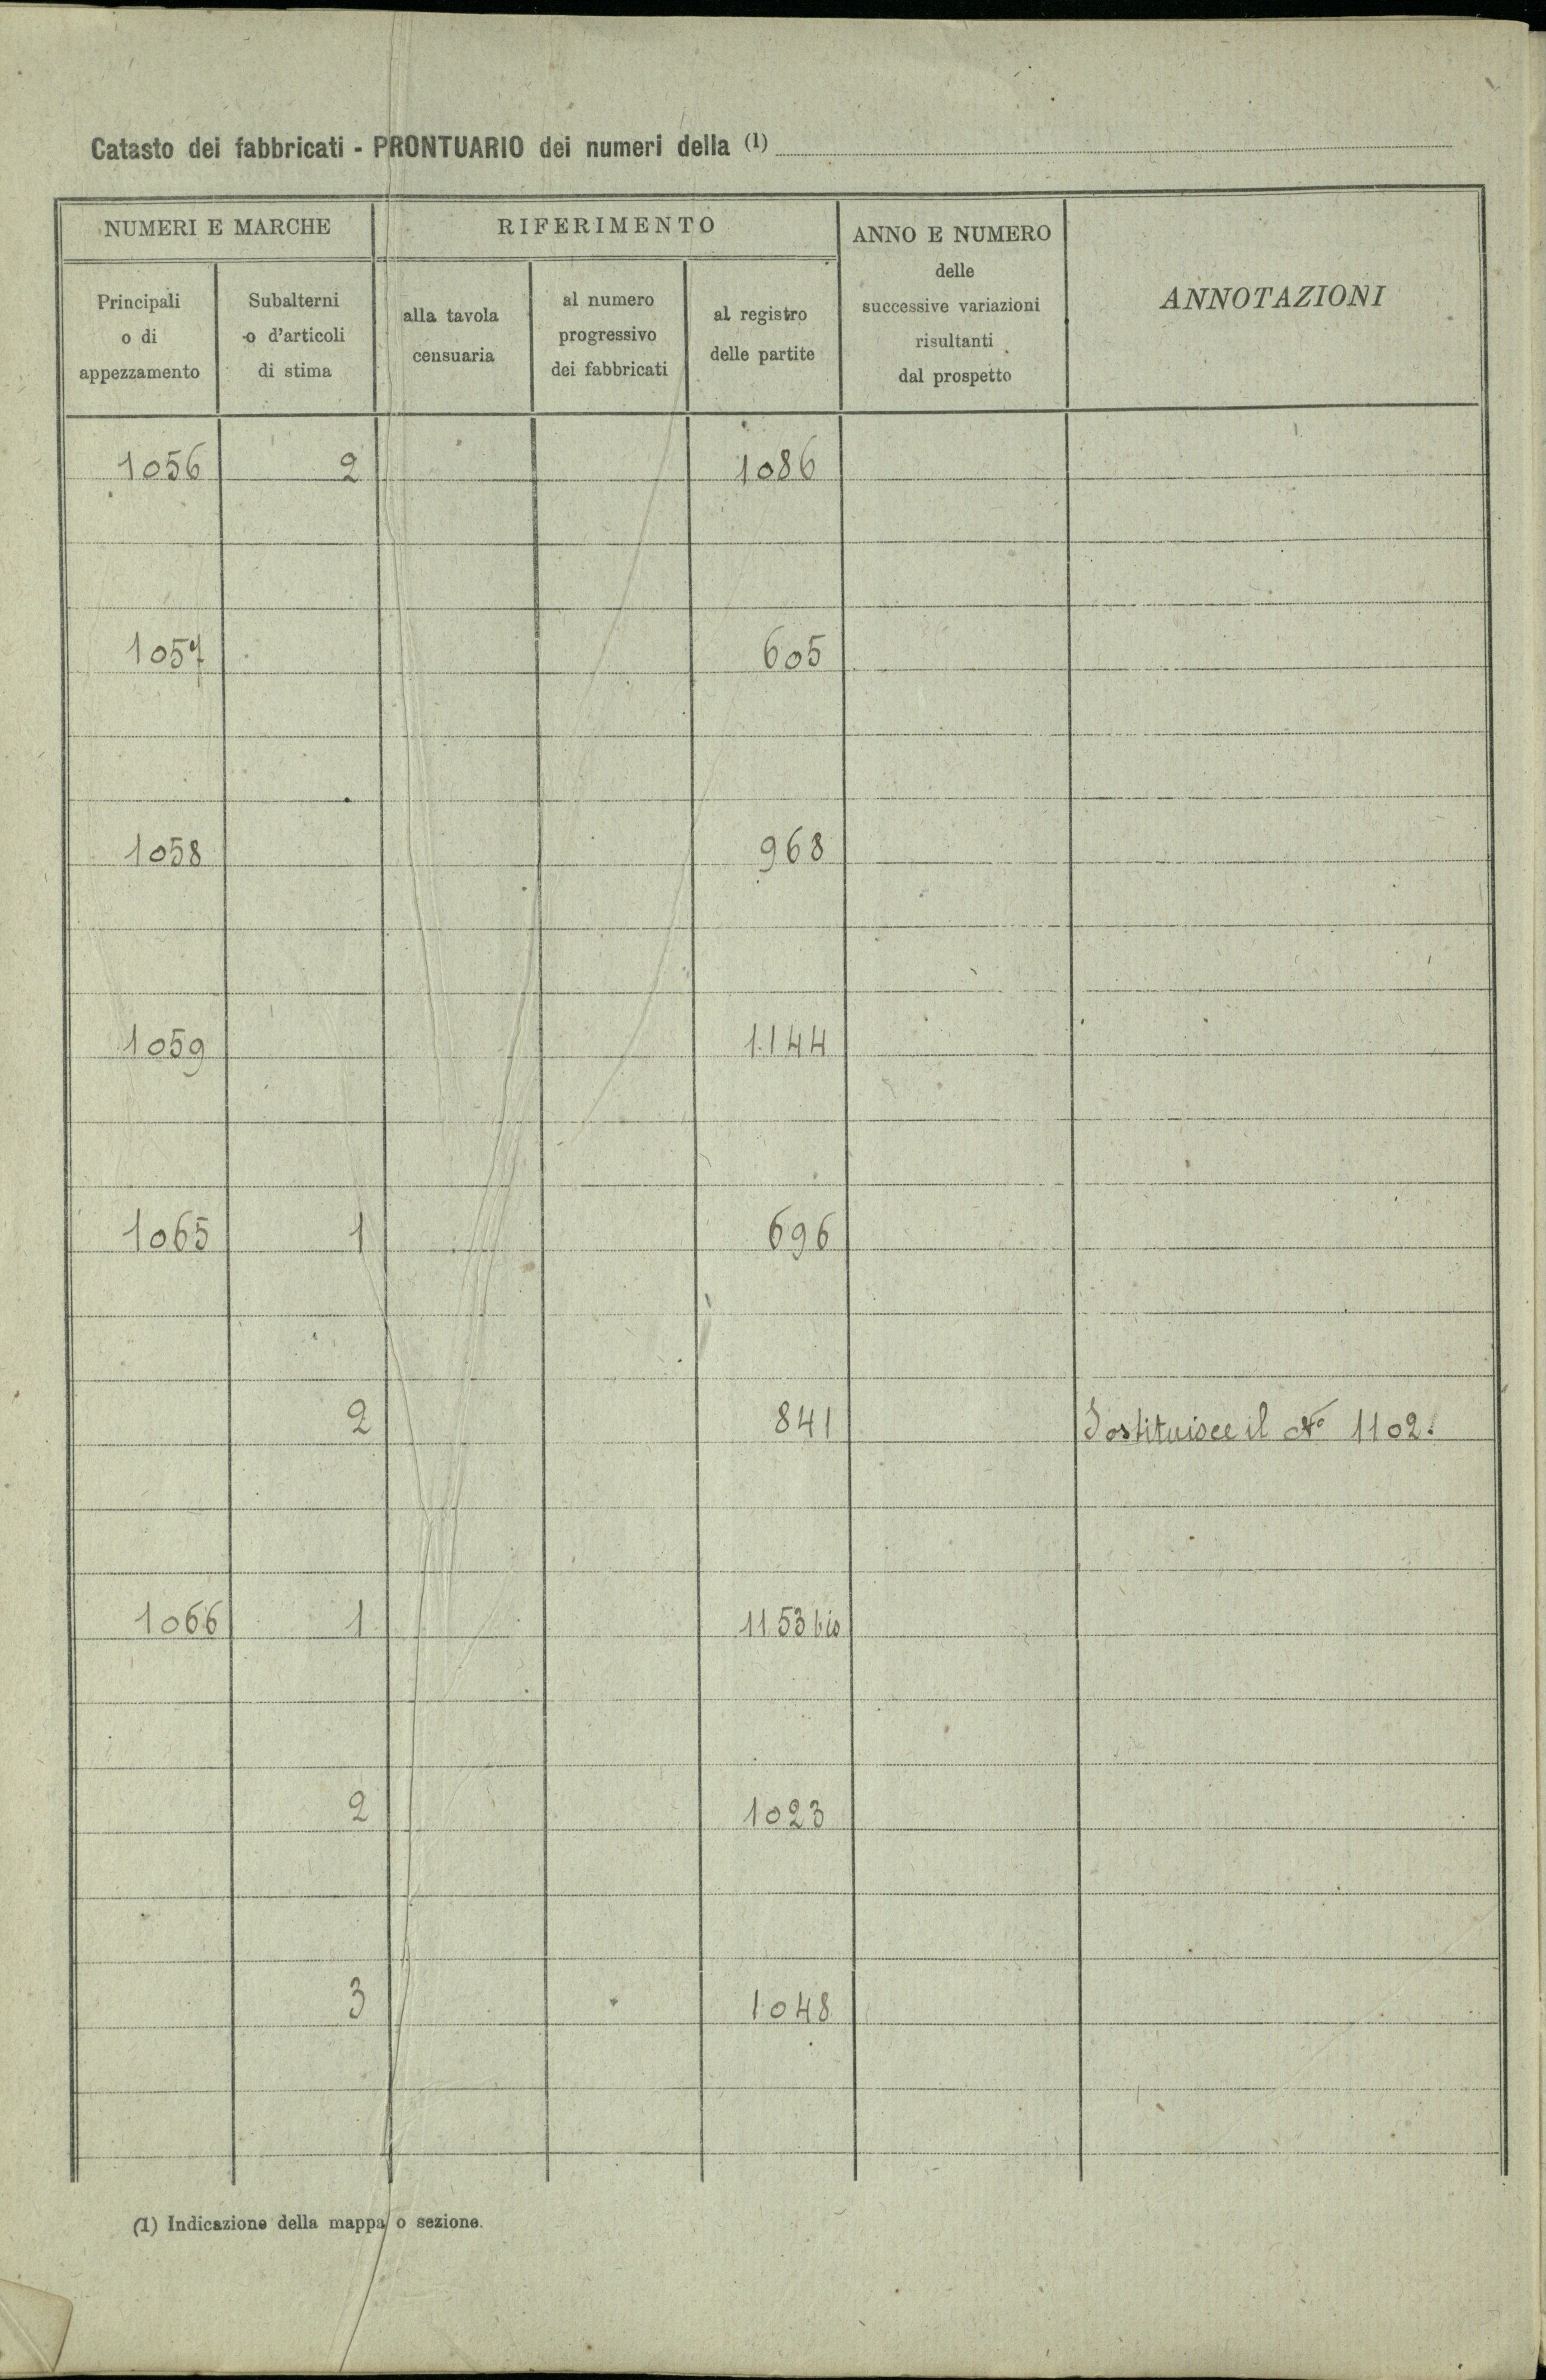 Catasto dei fabbricati - PRONTUARIO dei numeri della (1)
NUMERI E MARCHE
RIFERIMENTO
ANNO E NUMERO
delle
successive variazioni
risultanti
dal prospetto
ANNOTAZIONI
Principali
o di
appezzamento
Subalterni
o d'articoli
di stima
alla tavola
censuaria
al numero
progressivo
dei fabbricati
al registro
delle partite
1056 2 1086
1057 605
1058 968
1059 1144
1065 1 696
2 841 Sostituisce il No 1102.
1066 1 1153 bis
2 1023
3 1048
(1) Indicazione della mappa o sezione.